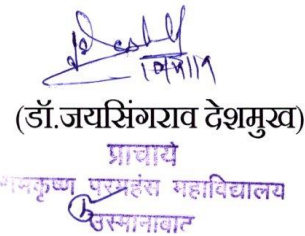 (डॉ.जयसिंगराव देशमुख)
प्राचार्य
परमहंस महाविद्यालय
उस्मानाबाद